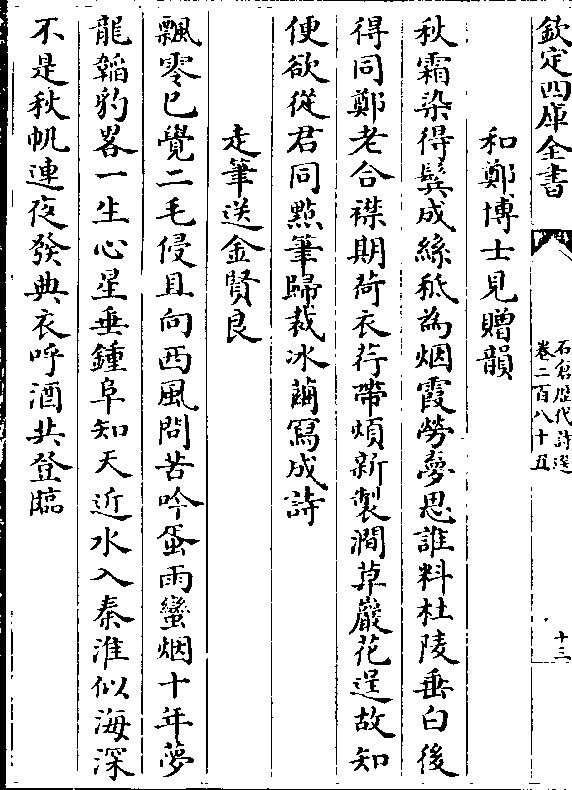 欽定四庫全書
石倉歷代詩選
卷二百八十五
十三
和鄭博士見贈韻
秋霜染得鬂成絲秪為烟霞勞夢思誰料杜陵垂白後
得同鄭老合襟期荷衣荇帶煩新製澗草巖花逞故知
便欲從君同㸃筆歸裁冰繭寫成詩
走筆送金賢良
飄零已覺二毛侵且向西風問苦吟蜑雨蠻烟十年夢
龍韜豹畧一生心星垂鍾阜知天近水入秦淮似海深
不是秋帆連夜發典衣呼酒共登臨